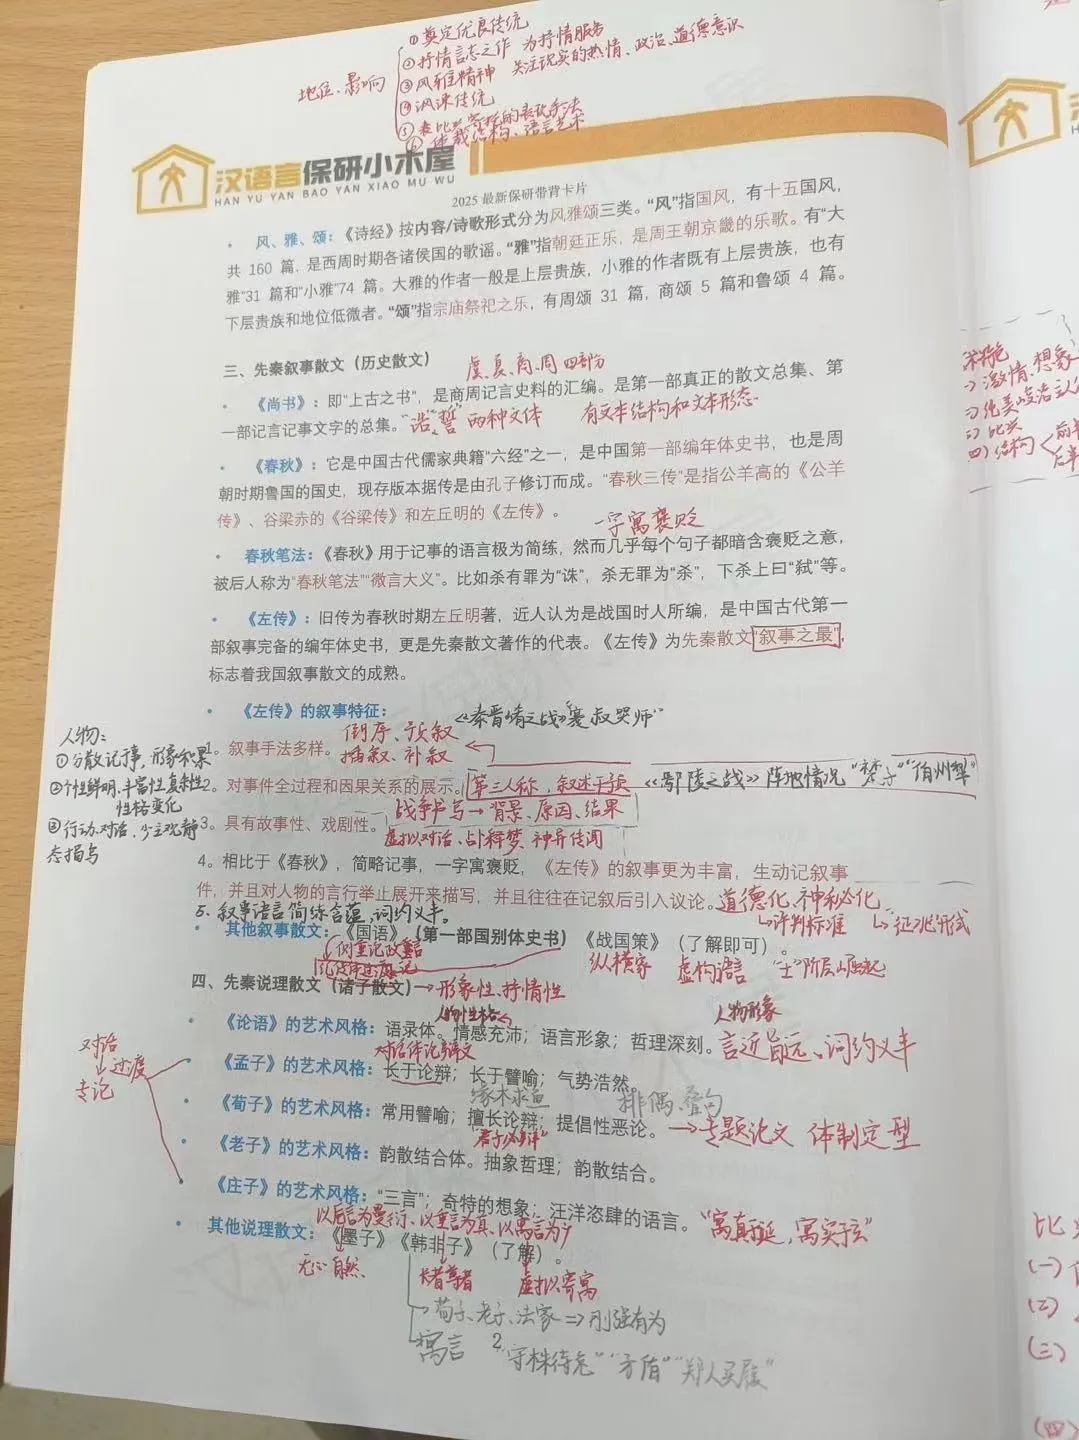 ①奠定优良传统
②抒情言志之作 为抒情服务
地位、影响
③风雅精神 关注现实的热情、政治、道德意识
④讽谏传统
⑤赋比兴寄托的表现手法
⑥体裁结构、语言艺术
汉语言保研小木屋
HAN YU YAN BAO YAN XIAO MU WU
2025 最新保研带背卡片
• 风、雅、颂：《诗经》按内容/诗歌形式分为风雅颂三类。“风”指国风，有十五国风，
共 160 篇，是西周时期各诸侯国的歌谣。“雅”指朝廷正乐，是周王朝京畿的乐歌。有“大
雅”31 篇和“小雅”74 篇。大雅的作者一般是上层贵族，小雅的作者既有上层贵族，也有
下层贵族和地位低微者。“颂”指宗庙祭祀之乐，有周颂 31 篇，商颂 5 篇和鲁颂 4 篇。
三、先秦叙事散文（历史散文）
虞、夏、商、周 四部分
• 《尚书》：即“上古之书”，是商周记言史料的汇编。是第一部真正的散文总集、第
一部记言记事文字的总集。
“诰”“誓”两种文体 有文本结构和文本形态
• 《春秋》：它是中国古代儒家典籍“六经”之一，是中国第一部编年体史书，也是周
朝时期鲁国的国史，现存版本据传是由孔子修订而成。“春秋三传”是指公羊高的《公羊
传》、谷梁赤的《谷梁传》和左丘明的《左传》。
一字寓褒贬
• 春秋笔法：《春秋》用于记事的语言极为简练，然而几乎每个句子都暗含褒贬之意，
被后人称为“春秋笔法”“微言大义”。比如杀有罪为“诛”，杀无罪为“杀”，下杀上曰“弑”等。
• 《左传》：旧传为春秋时期左丘明著，近人认为是战国时人所编，是中国古代第一
部叙事完备的编年体史书，更是先秦散文著作的代表。《左传》为先秦散文“叙事之最”，
标志着我国叙事散文的成熟。
• 《左传》的叙事特征：
《秦晋崤之战》“蹇叔哭师”
倒序、预叙
1。叙事手法多样。
插叙、补叙
2。对事件全过程和因果关系的展示。
第三人称，叙述干预
《鄢陵之战》阵地情况
战争书写→背景、原因、结果
3。具有故事性、戏剧性。
虚拟对话、占释梦、神异传闻
人物：
①分散记事，形象积累
②个性鲜明、丰富性复杂性
性格变化
③行动、对话，少主观静
态描写
4。相比于《春秋》，简略记事，一字寓褒贬，《左传》的叙事更为丰富，生动记叙事
件，并且对人物的言行举止展开来描写，并且往往在记叙后引入议论。
道德化、神秘化
↳评判标准 ↳
5、叙事语言简练含蕴，词约义丰。
• 其他叙事散文：《国语》（第一部国别体史书）《战国策》（了解即可）。
侧重记政言
纵横家 虚构语言 “士”阶层崛起
四、先秦说理散文（诸子散文）
→形象性、抒情性
人物性格 人物形象
• 《论语》的艺术风格：语录体。情感充沛；语言形象；哲理深刻。
言近旨远、词约义丰
对话体论辩文
• 《孟子》的艺术风格：长于论辩；长于譬喻；气势浩然
缘木求鱼 排偶、叠句
• 《荀子》的艺术风格：常用譬喻；擅长论辩；提倡性恶论。
→专题论文 体制定型
• 《老子》的艺术风格：韵散结合体。抽象哲理；韵散结合。
• 《庄子》的艺术风格：“三言”；奇特的想象；汪洋恣肆的语言。
以卮言为曼衍、以重言为真、以寓言为广
“寓真于诞，寓实于玄”
• 其他说理散文：《墨子》《韩非子》（了解）。
无心自然 长者尊者 虚拟寄寓
对话
↓过渡
专论
→荀子、老子、法家⇒刚强有为
寓言 “守株待兔”“矛盾”“郑人买履”
2
汉
激情、想象
比兴
结构
比
(一)
(二)
(三)
(四)